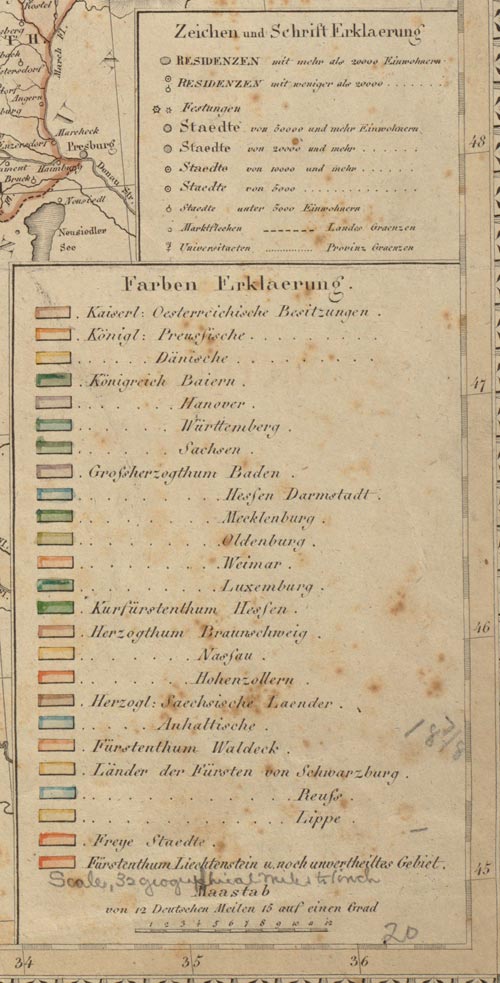 Kostel
T H
March Fl.
Angern
Marcheck
Presburg
Haimburg
Bruck
Donau Str.
Neusiedl
Neusiedler
See
Zeichen und Schrift Erklaerung
RESIDENZEN mit mehr als 20000 Einwohnern
RESIDENZEN mit weniger als 20000 . . . . . . .
Festungen
Staedte von 50000 und mehr Einwohnern
Staedte von 20000 und mehr . . . . . . .
Staedte von 10000 und mehr . . . . . . .
Staedte von 5000 . . . . . . . . . . . . . .
Staedte unter 5000 Einwohnern
Marktflecken Landes Graenzen
Universitaeten Provinz Graenzen
48
47
46
45
Farben Erklaerung.
Kaiserl: Oesterreichische Besitzungen .
Königl: Preusſische . . . . . . . . .
Dänische . . . . . . . . .
Königreich Baiern .
Hanover .
Württemberg .
Sachsen .
Groſsherzogthum Baden .
Heſsen Darmstadt .
Mecklenburg .
Oldenburg .
Weimar .
Luxemburg .
Kurfürstenthum Heſsen .
Herzogthum Braunschweig .
Naſsau .
Hohenzollern .
Herzogl: Saechsische Laender .
Anhaltische .
Fürstenthum Waldeck .
Länder der Fürsten von Schwarzburg .
Reuſs .
Lippe .
Freye Staedte .
Fürstenthum Liechtenstein u. noch unvertheiltes Gebiet .
Scale, 32 geographical miles to 1 inch
Maastab
von 12 Deutschen Meilen 15 auf einen Grad
1 2 3 4 5 6 7 8 9 10 11 12
20
34 35 36